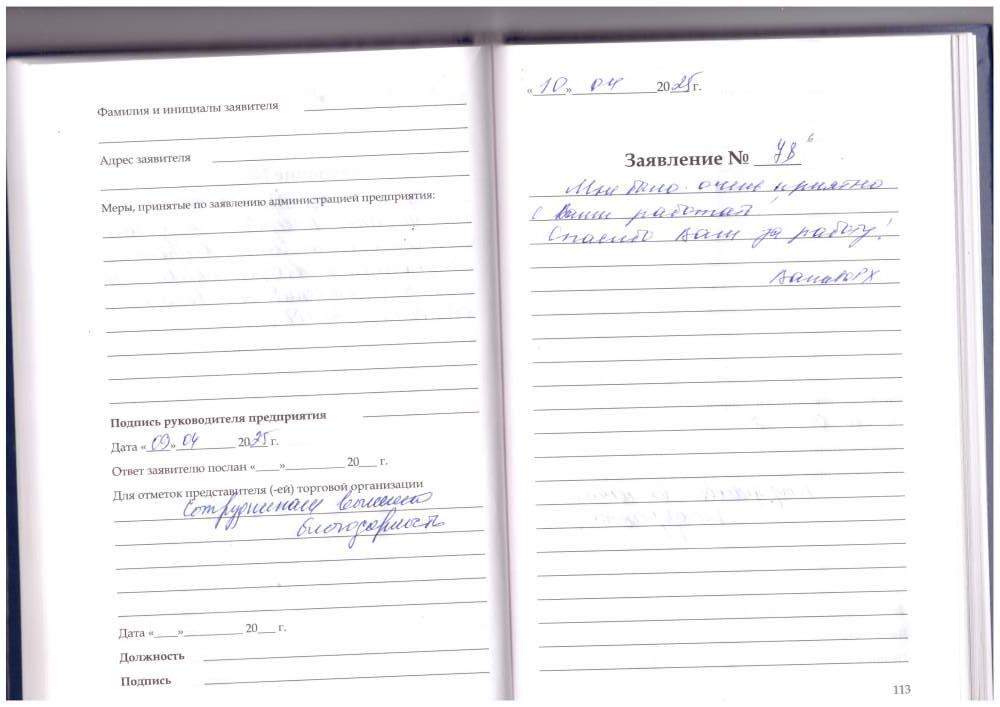 Фамилия и инициалы заявителя
Адрес заявителя
Меры, принятые по заявлению администрацией предприятия:
Подпись руководителя предприятия
Дата «09» 04 2025 г.
Ответ заявителю послан «____»__________ 20___ г.
Для отметок представителя (-ей) торговой организации
Сотрудникам вынесена
благодарность
Дата «____»__________ 20___ г.
Должность
Подпись
«10» 04 2025 г.
Заявление № 78
Мне было очень приятно
с Вами работать,
Спасибо Вам за работу!
113